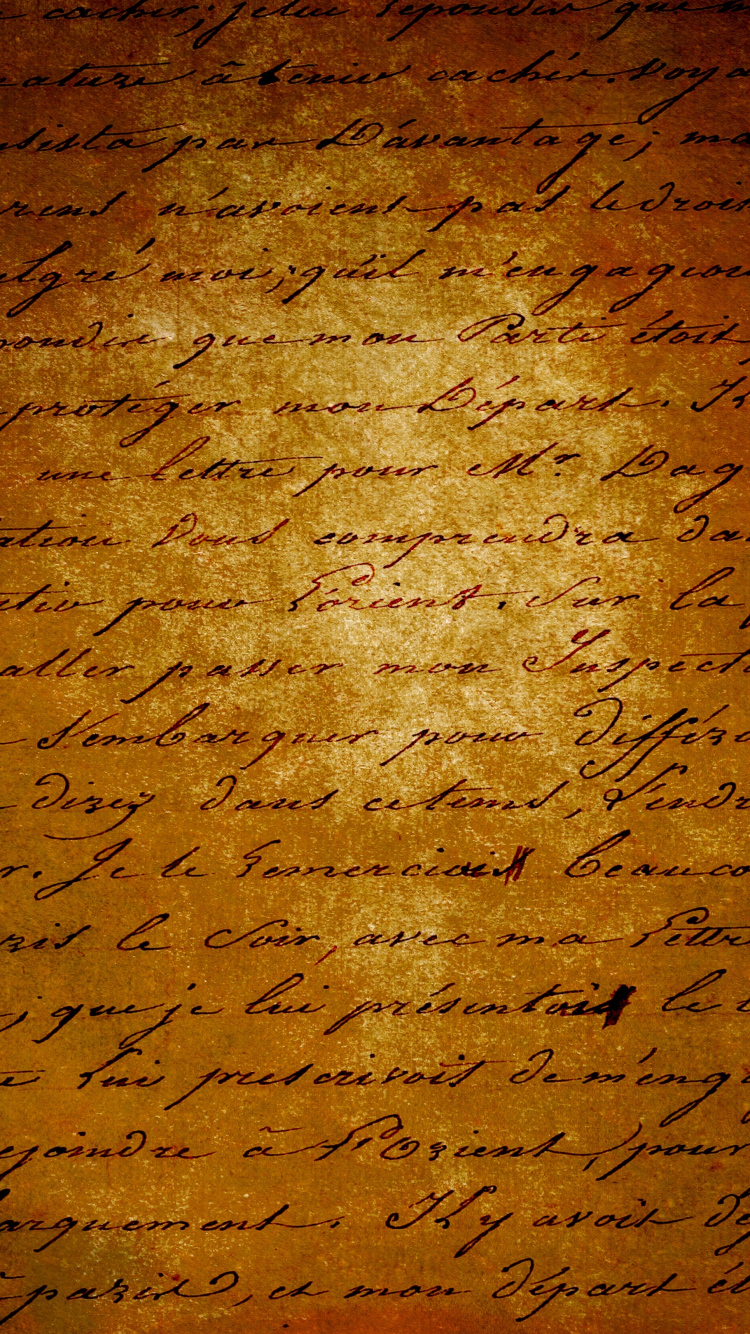 cacher; je lui repondis que
nature à tenir cachér. Voya
nsista par Davantage; ma
rens n'avoient pas le droit
algré moi; qu'il m'engageon
pondis que mon Parti étoit
protéger mon Départ. Il
une Lettre pour Mr. Dag
tation Vous comprendra da
pour L'orient. Sur la
aller passer mon Inspect
s'embarquer pour différe
dizez dans cetems, s'endr
r. Je le remerciois beauco
ris le Soir, avec ma Lettr
; que je lui présentois le
Lui prescrivoit de m'eng
ejoindre à L'Orient, pour
arquement. Il y avoit
à pazis, et mon départ ét